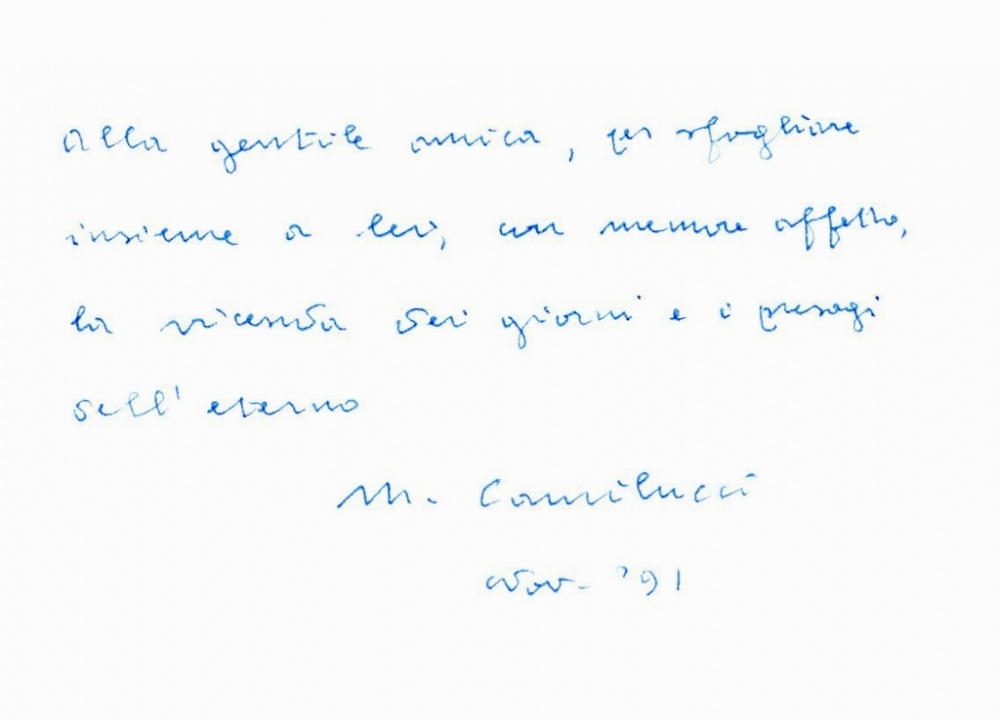 alla gentile amica, per sfogliare
insieme a lei, con memore affetto,
la vicenda dei giorni e i presagi
dell'eterno
M. Camilucci
Nov. '91